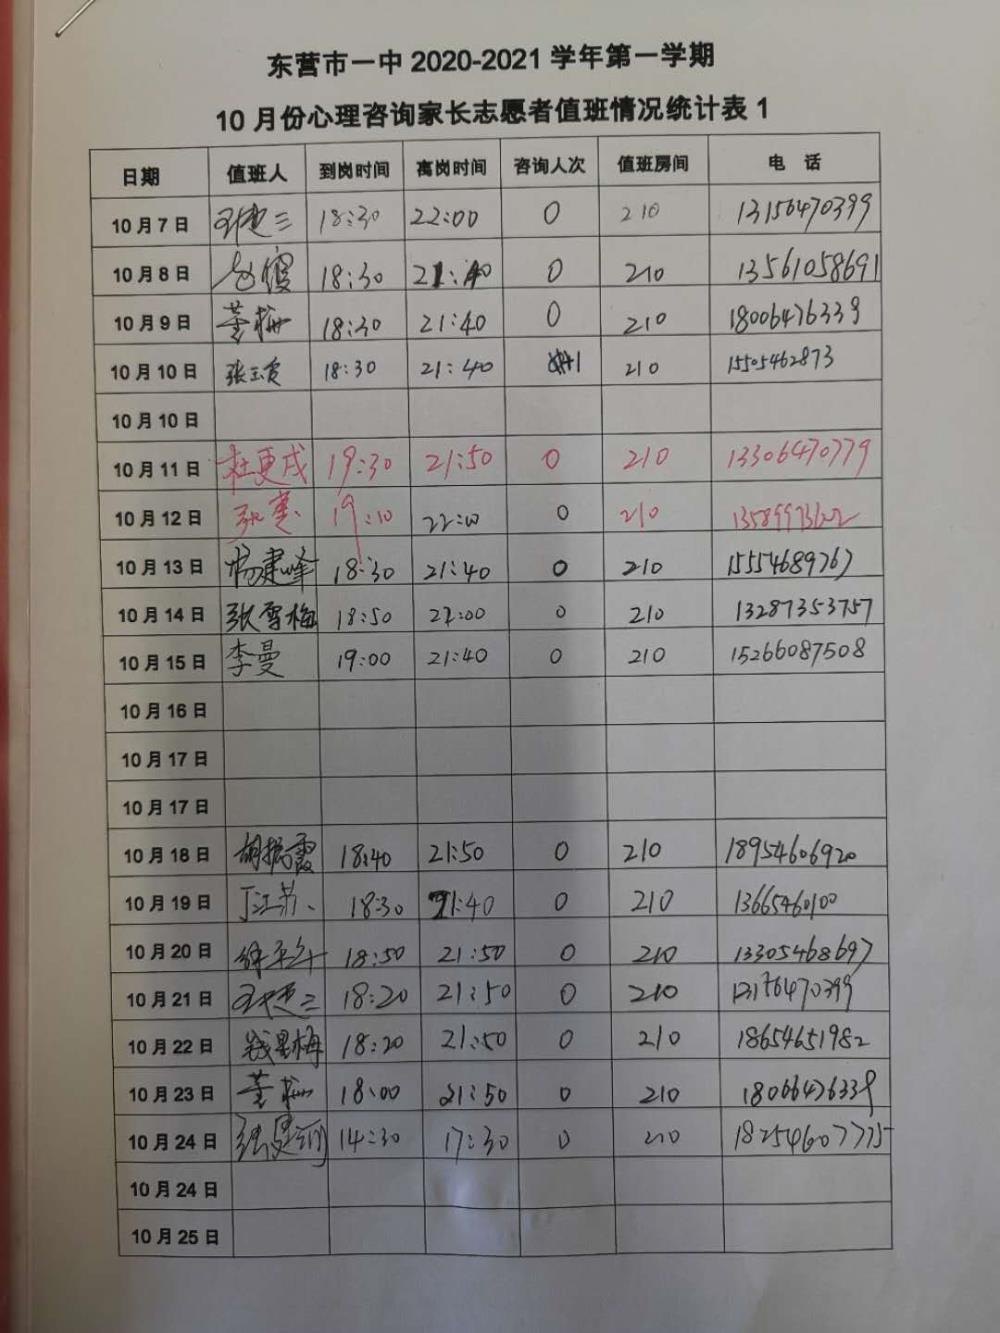 东营市一中 2020-2021 学年第一学期
10 月份心理咨询家长志愿者值班情况统计表 1
日期 值班人 到岗时间 离岗时间 咨询人次 值班房间 电 话
10 月 7 日 18:30 22:00 0 210 13156470399
10 月 8 日 18:30 21:40 0 210 13561058691
10 月 9 日 董梅 18:30 21:40 0 210 18006476339
10 月 10 日 张玉霞 18:30 21:40 1 210 15505462873
10 月 10 日
10 月 11 日 杜更成 19:30 21:50 0 210 13306470779
10 月 12 日 19:10 22:00 0 210
10 月 13 日 杨建峰 18:30 21:40 0 210 15554689767
10 月 14 日 张雪梅 18:50 22:00 0 210 13287353757
10 月 15 日 李曼 19:00 21:40 0 210 15266087508
10 月 16 日
10 月 17 日
10 月 17 日
10 月 18 日 胡振霞 18:40 21:50 0 210 18954606920
10 月 19 日 丁江苏 18:30 21:40 0 210 13665460100
10 月 20 日 18:50 21:50 0 210 13305468697
10 月 21 日 18:20 21:50 0 210
10 月 22 日 18:20 21:50 0 210 18654651982
10 月 23 日 董梅 18:00 21:50 0 210 18066476339
10 月 24 日 14:30 17:30 0 210 18254607775
10 月 24 日
10 月 25 日